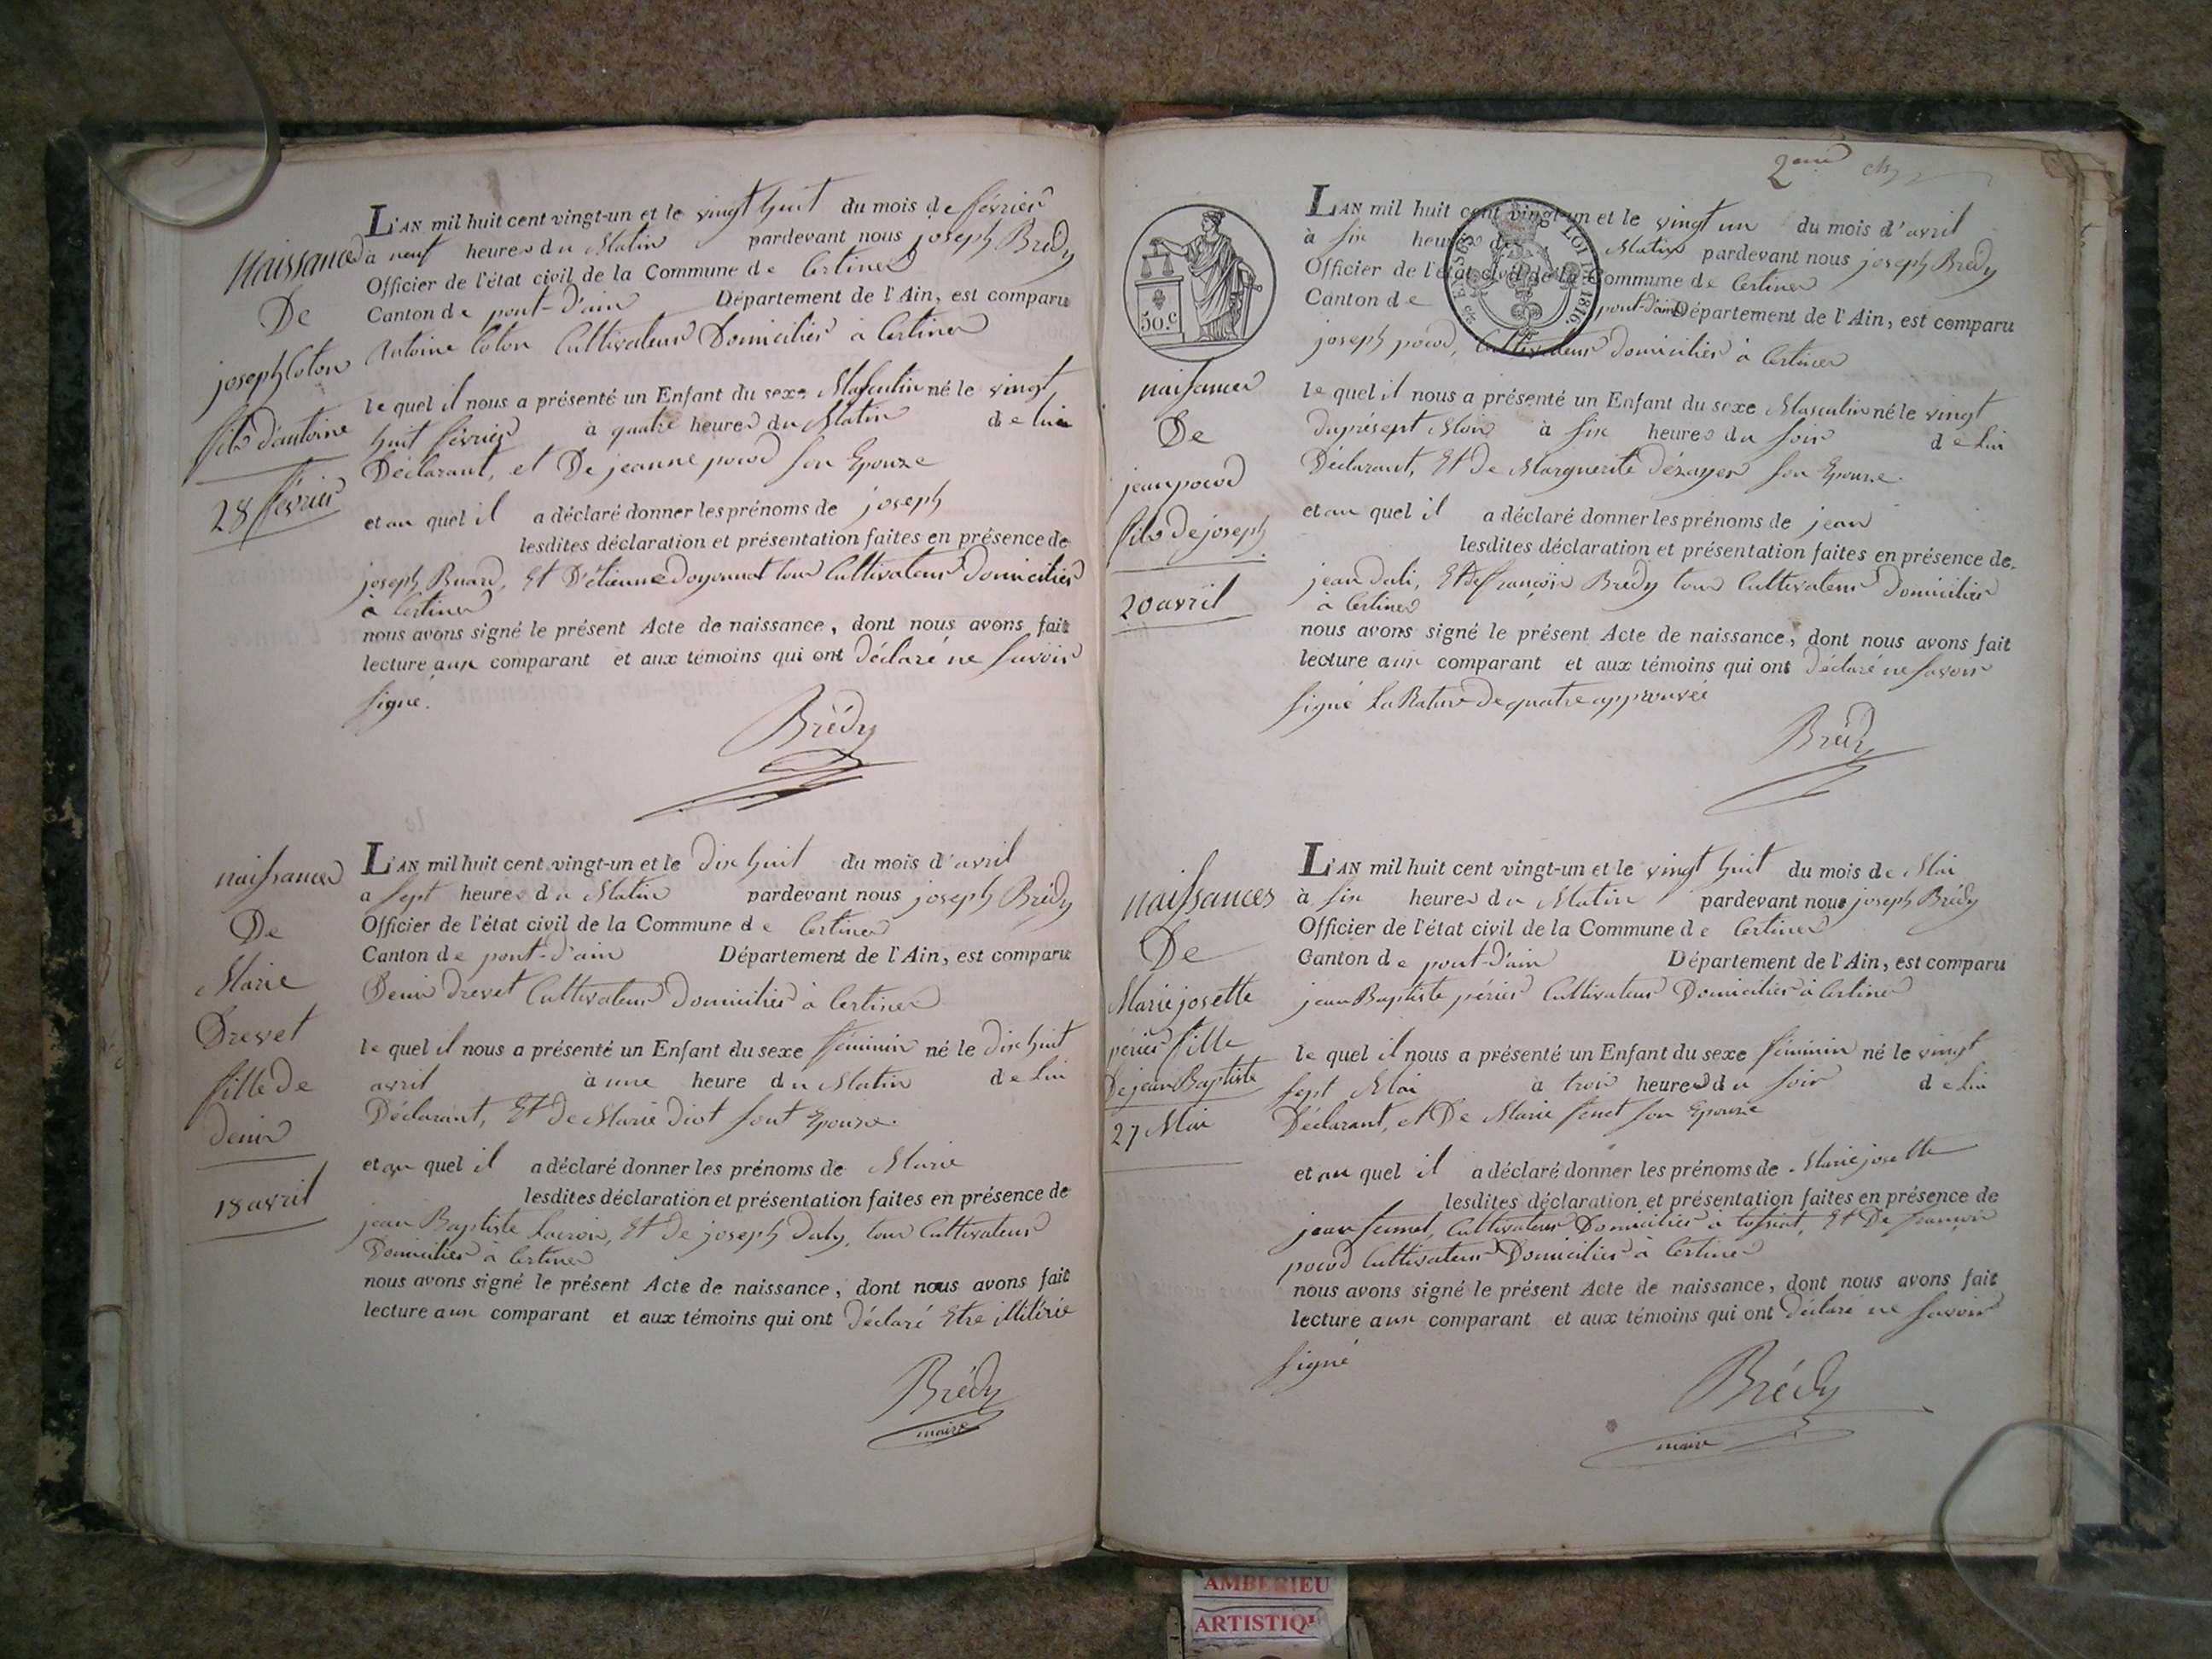 Naissance
De
joseph Coton
fils d'antoine
28 février
L'AN mil huit cent vingt-un et le vingt huit du mois de février
à neuf heures du Matin pardevant nous joseph Brédy
Officier de l'état civil de la Commune de Certines
Canton de pont-d'ain Département de l'Ain, est comparu
Antoine Coton Cultivateur Domicilié à Certines
le quel il nous a présenté un Enfant du sexe Masculin né le vingt
huit février à quatre heures du Matin de lui
Déclarant, et De jeanne pocod son Epouze
et au quel il a déclaré donner les prénoms de joseph
lesdites déclaration et présentation faites en présence de
joseph Buard, Et D'étienne doyonnat tous Cultivateurs Domiciliés
à Certines
nous avons signé le présent Acte de naissance, dont nous avons fait
lecture aux comparant et aux témoins qui ont déclaré ne savoir
signé.
Brédy
naissances
De
Marie
Drevet
fille de
denis
18 avril
L'AN mil huit cent vingt-un et le dix huit du mois d'avril
a sept heures du Matin pardevant nous joseph Brédy
Officier de l'état civil de la Commune de Certines
Canton de pont-d'ain Département de l'Ain, est comparu
Denis drevet Cultivateur domicilié à Certines
le quel il nous a présenté un Enfant du sexe féminin né le dix huit
avril à une heure du Matin de lui
Déclarant, Et de Marie diot sont Epouze.
et au quel il a déclaré donner les prénoms de Marie
lesdites déclaration et présentation faites en présence de
jean Baptiste Lacroix, Et de joseph daly, tous Cultivateurs
Domiciliés à Certines
nous avons signé le présent Acte de naissance, dont nous avons fait
lecture aux comparant et aux témoins qui ont déclaré Etre illitérés
Brédy
maire
2eme
50.c
LOI 1816.
naissances
De
jean pocod
fils de joseph
20 avril
L'AN mil huit cent vingt-un et le vingt un du mois d'avril
à six heures du Matin pardevant nous joseph Brédy
Officier de l'état civil de la Commune de Certines
Canton de pont-d'ain Département de l'Ain, est comparu
joseph pocod, Cultivateur domicilié à Certines
le quel il nous a présenté un Enfant du sexe Masculin né le vingt
du présent Mois à six heures du soir de lui
Déclarant, Et de Marguerite dézayes son Epouze.
et au quel il a déclaré donner les prénoms de jean
lesdites déclaration et présentation faites en présence de
jean dali, Et de françois Brédy tous Cultivateurs Domiciliés
à Certines
nous avons signé le présent Acte de naissance, dont nous avons fait
lecture aux comparant et aux témoins qui ont déclaré ne savoir
signé la Rature de quatre approuvée
Brédy
naissances
De
Marie josette
périer fille
De jean Baptiste
27 Mai
L'AN mil huit cent vingt-un et le vingt huit du mois de Mai
à six heures du Matin pardevant nous joseph Brédy
Officier de l'état civil de la Commune de Certines
Canton de pont-d'ain Département de l'Ain, est comparu
jean Baptiste périer Cultivateur Domicilié à Certines
le quel il nous a présenté un Enfant du sexe féminin né le vingt
sept Mai à trois heures du soir de lui
Déclarant, et De Marie son Epouze
et au quel il a déclaré donner les prénoms de Marie josette
lesdites déclaration et présentation faites en présence de
jean Cultivateur Domicilié à tossiat, Et De françois
pocod Cultivateur Domicilié à Certines
nous avons signé le présent Acte de naissance, dont nous avons fait
lecture aux comparant et aux témoins qui ont déclaré ne savoir
signé
Brédy
maire
AMBERIEU
ARTISTIQ